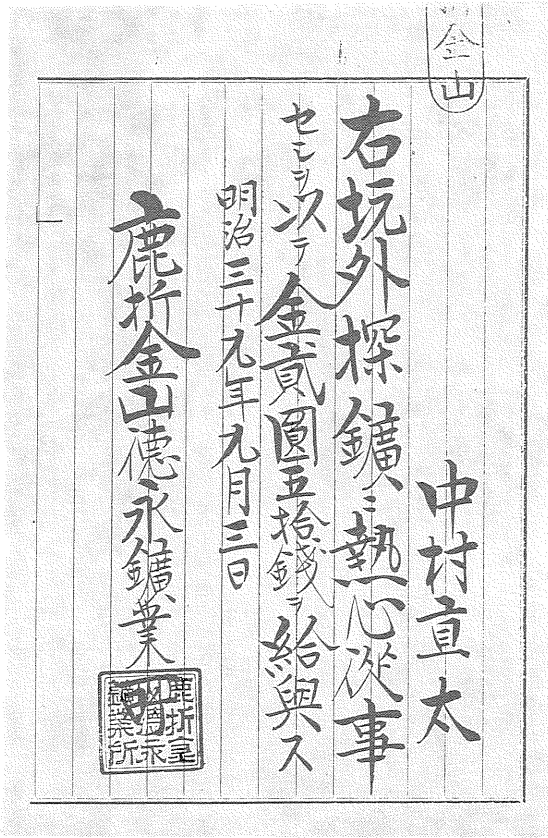 金山
中村亘太
右坑外探鑛ニ熱心從事
セシヲ以テ金貳圓五拾錢ヲ給與ス
明治三十九年九月三日
鹿折金山德永鑛業所